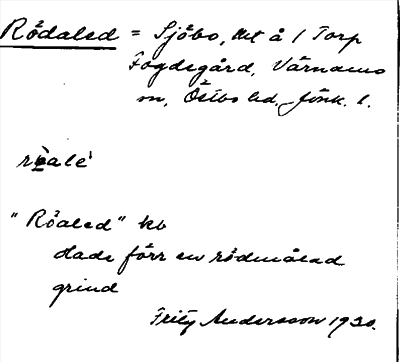 Rödaled = Sjöbo, lht å 1 Torp
Fogdegård, Värnamo
sn, Östbo hd. Jönk. l.
röalé
"Röaled" kb
Hade förr en rödmålad
grind
Fritz Andersson 1930.